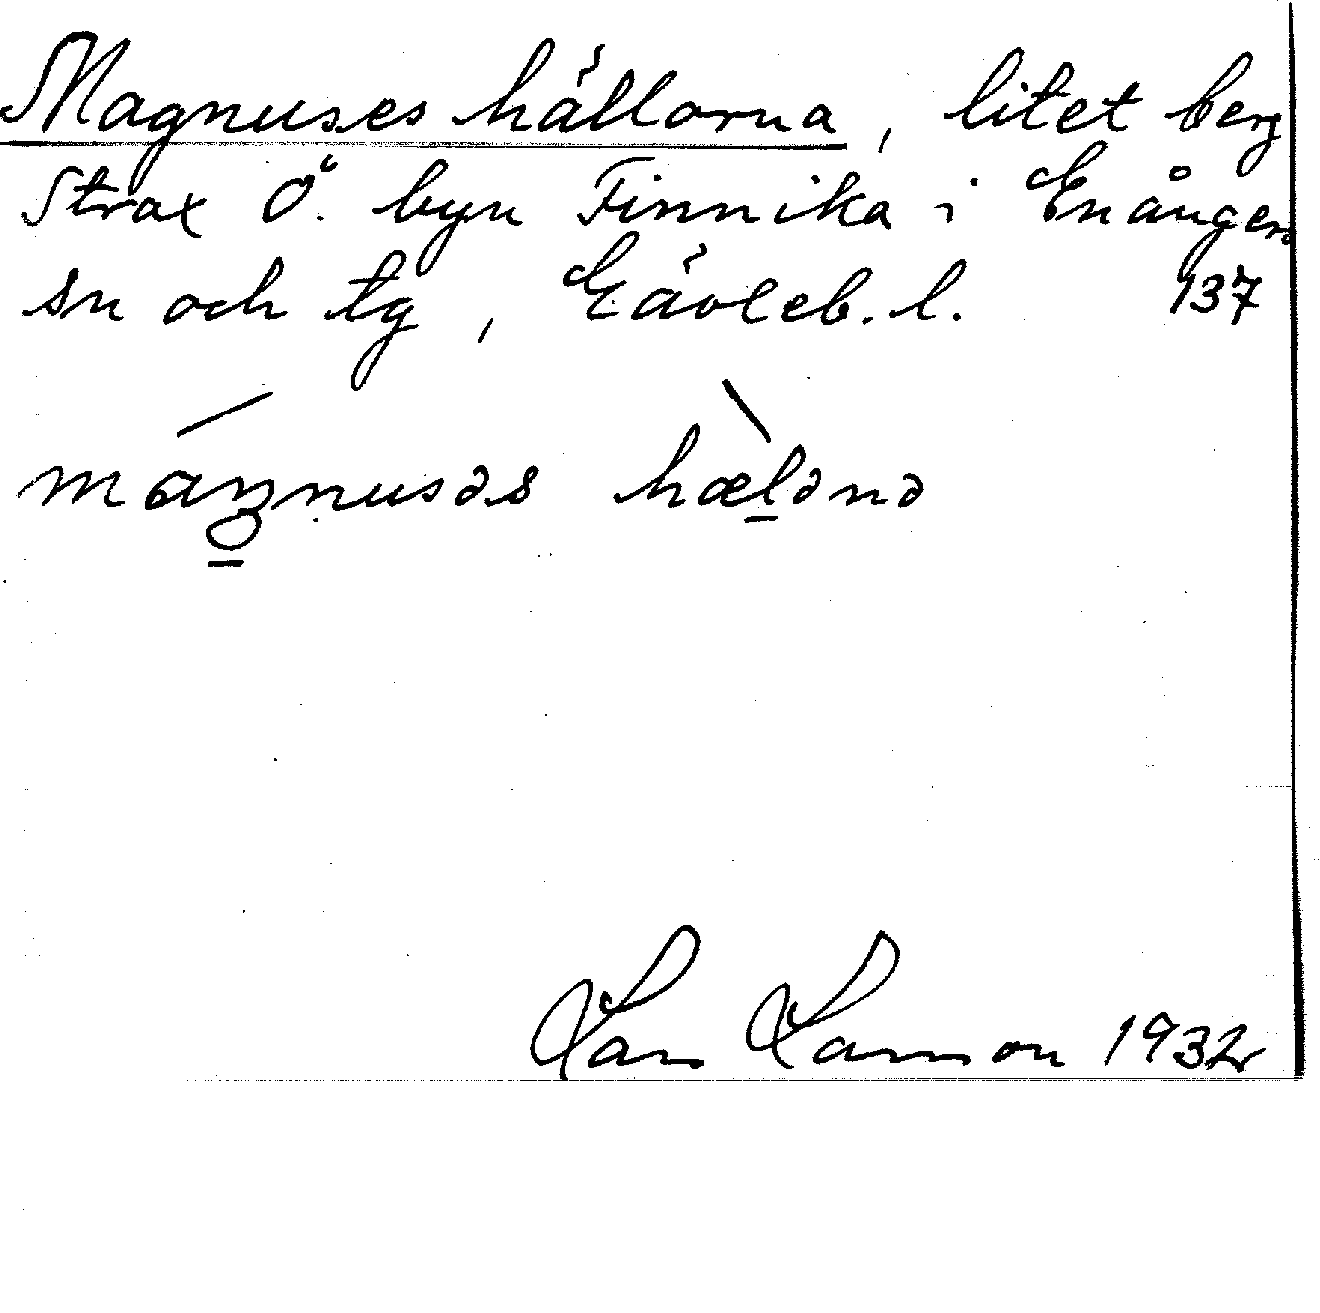 Magnuses hällorna, litet berg
strax Ö. byn Finnika i Enångers
sn och tg, Gävleb. l. 137
maŋnusəs hælənə
Lars Larsson 1932